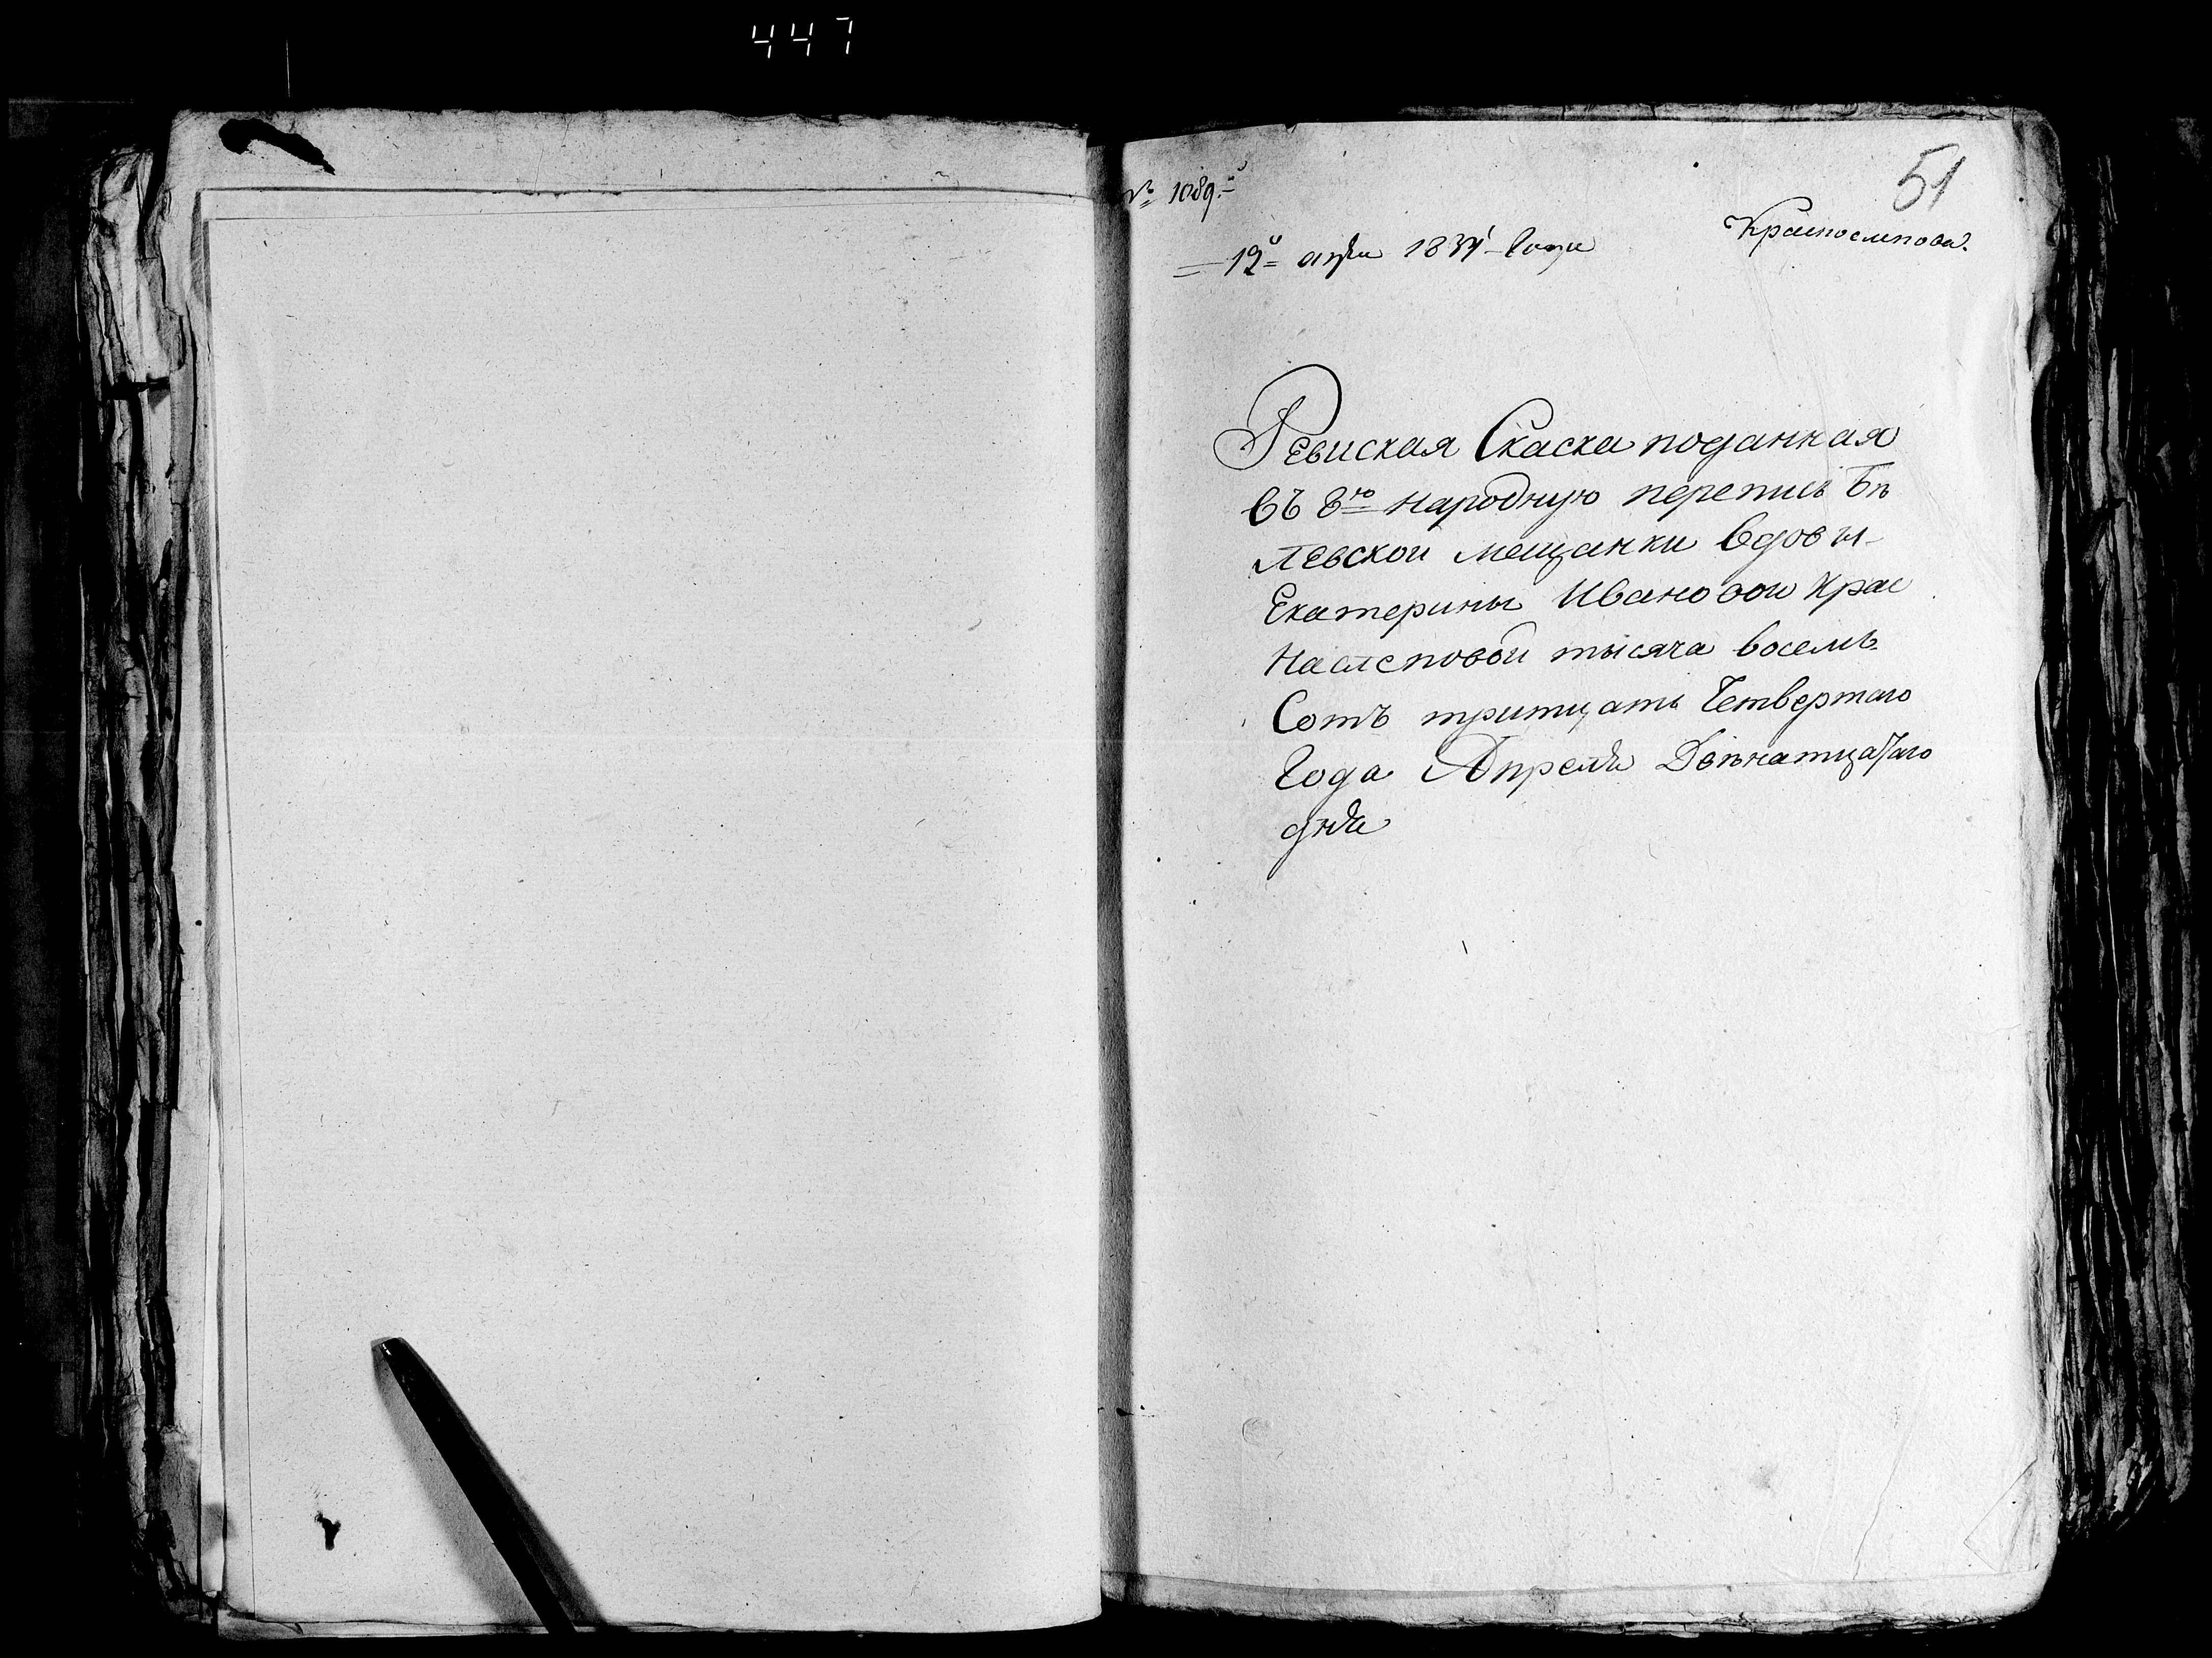 447
51
№ 1089.й
12й апрля 1834 года
Ревиская Скаска поданная
въ 8ю народную перепись Бѣ
левской мещанки вдовы
Екатерины Ивановой Крас
наслеповой тысяча восемь
Сотъ тритцать Четвертаго
Года Апреля Двѣнатцатаго
дня